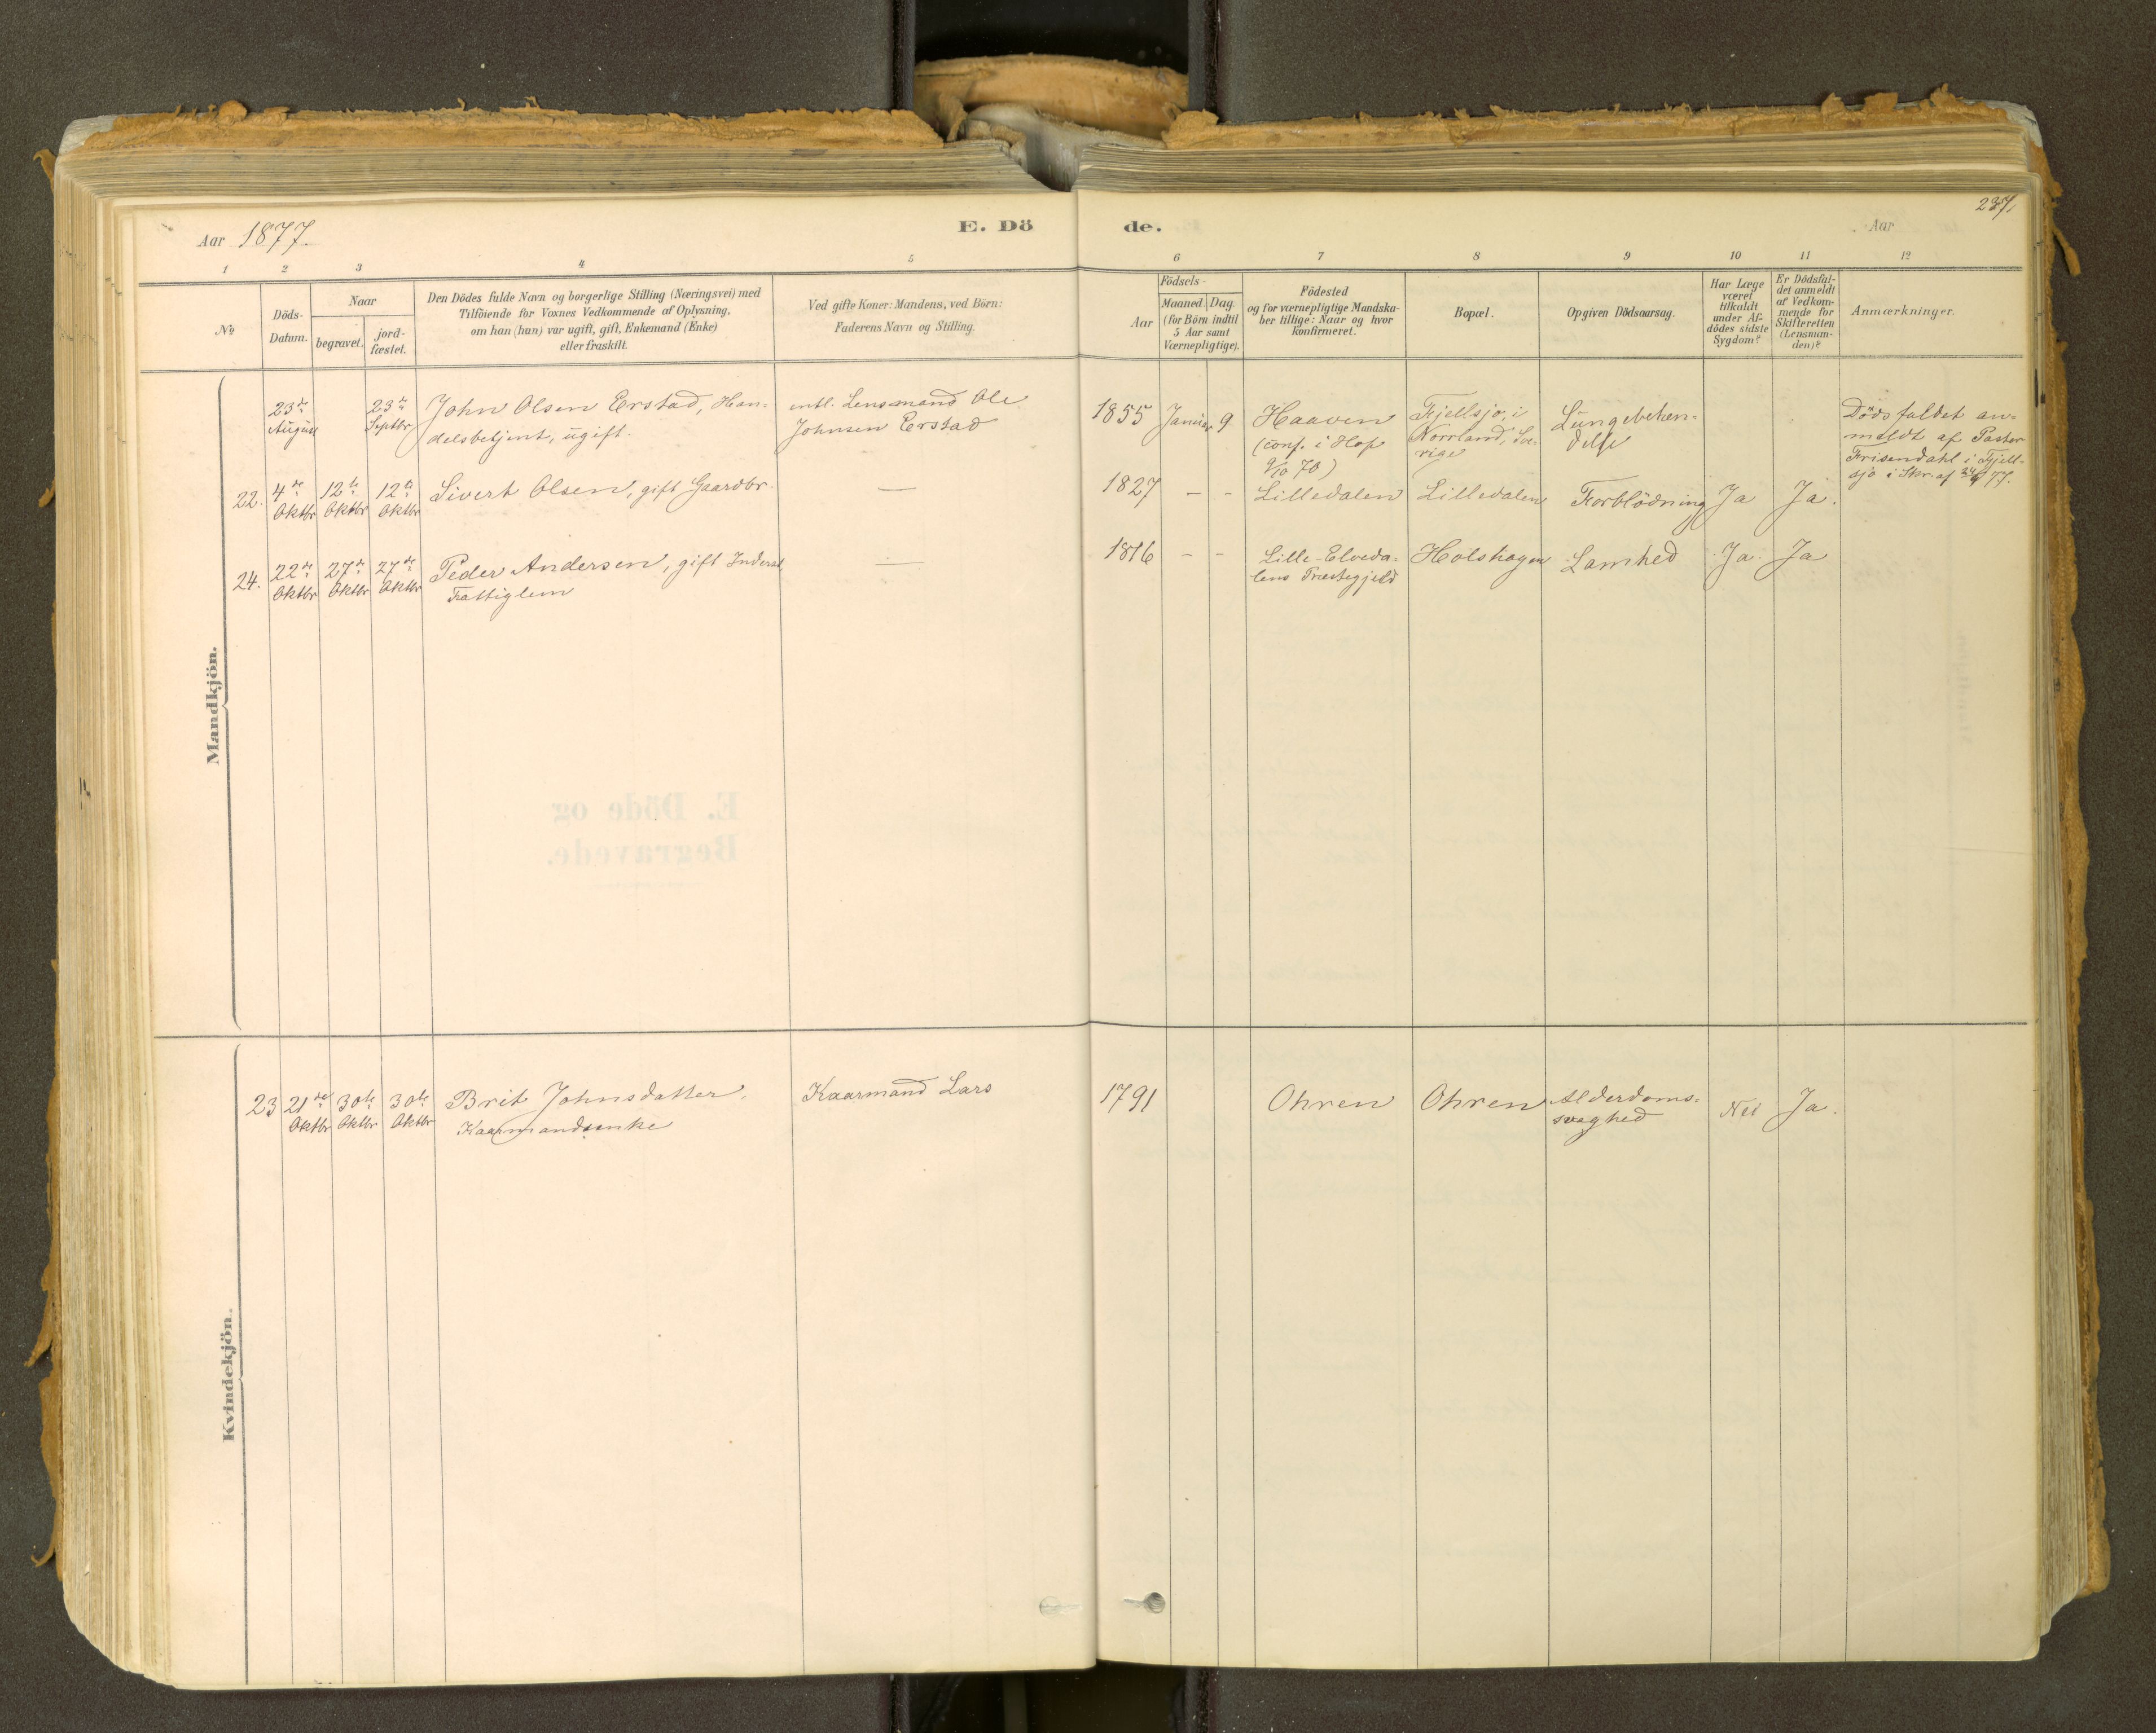 237,
Aar 1877.
E. Dö de.
Aar
1 2 3 4 5 6 7 8 9 10 11 12
No
Döds-
Datum.
Naar
begravet.
jord-
fæstet.
Den Dödes fulde Navn og borgerlige Stilling (Næringsvei) med
Tilföiende for Voxnes Vedkommende af Oplysning,
om han (hun) var ugift, gift, Enkemand (Enke)
eller fraskilt.
Ved gifte Koner: Mandens, ved Börn:
Faderens Navn og Stilling.
Aar
Födsels-
Maaned. Dag.
(for Börn indtil
5 Aar samt
Værnepligtige).
Födested
og for værnepligtige Mandska-
ber tillige: Naar og hvor
konfirmeret.
Bopæl.
Opgiven Dödsaarsag.
Har Læge
været
tilkaldt
under Af-
dödes sidste
Sygdom?
Er Dödsfal-
det anmeldt
af Vedkom-
mende for
Skifteretten
(Lensman-
den)?
Anmærkninger.
Mandkjön.
23de
August
23de
Septbr
John Olsen Erstad, Han-
delsbetjent, ugift.
entl. Lensmand Ole
Johnsen Erstad
1855 Januar 9
Haaven
(conf. i Hof
9/10 70)
Fjellsjo, i
Norrland, Sve-
rige
Lungebetæn-
delse
Dödsfaldet an-
meldt af Pastor
Frisendahl i Fjell-
sjo i Skr. af 24/8 77.
22. 4de
Oktbr
12te
Oktbr
12te
Oktbr
Sivert Olsen, gift Gaardbr.
—
1827 – –
Lilledalen
Lilledalen
Forblödning
Ja
Ja.
24. 22de
Oktbr
27de
Oktbr
27de
Oktbr
Peder Andersen, gift Inderst,
Fattiglem
—
1816 – –
Lille-Elveda-
lens Præstegjeld
Holshagen
Lamhed
Ja.
Ja
Kvindekjön.
23 21de
Oktbr
30te
Oktbr
30te
Oktbr
Brit Johnsdatter,
Kaarmandsenke
Kaarmand Lars
1791
Ohren
Ohren
Alderdoms-
svaghed
Nei
Ja.
E. Döde og
Begravede.